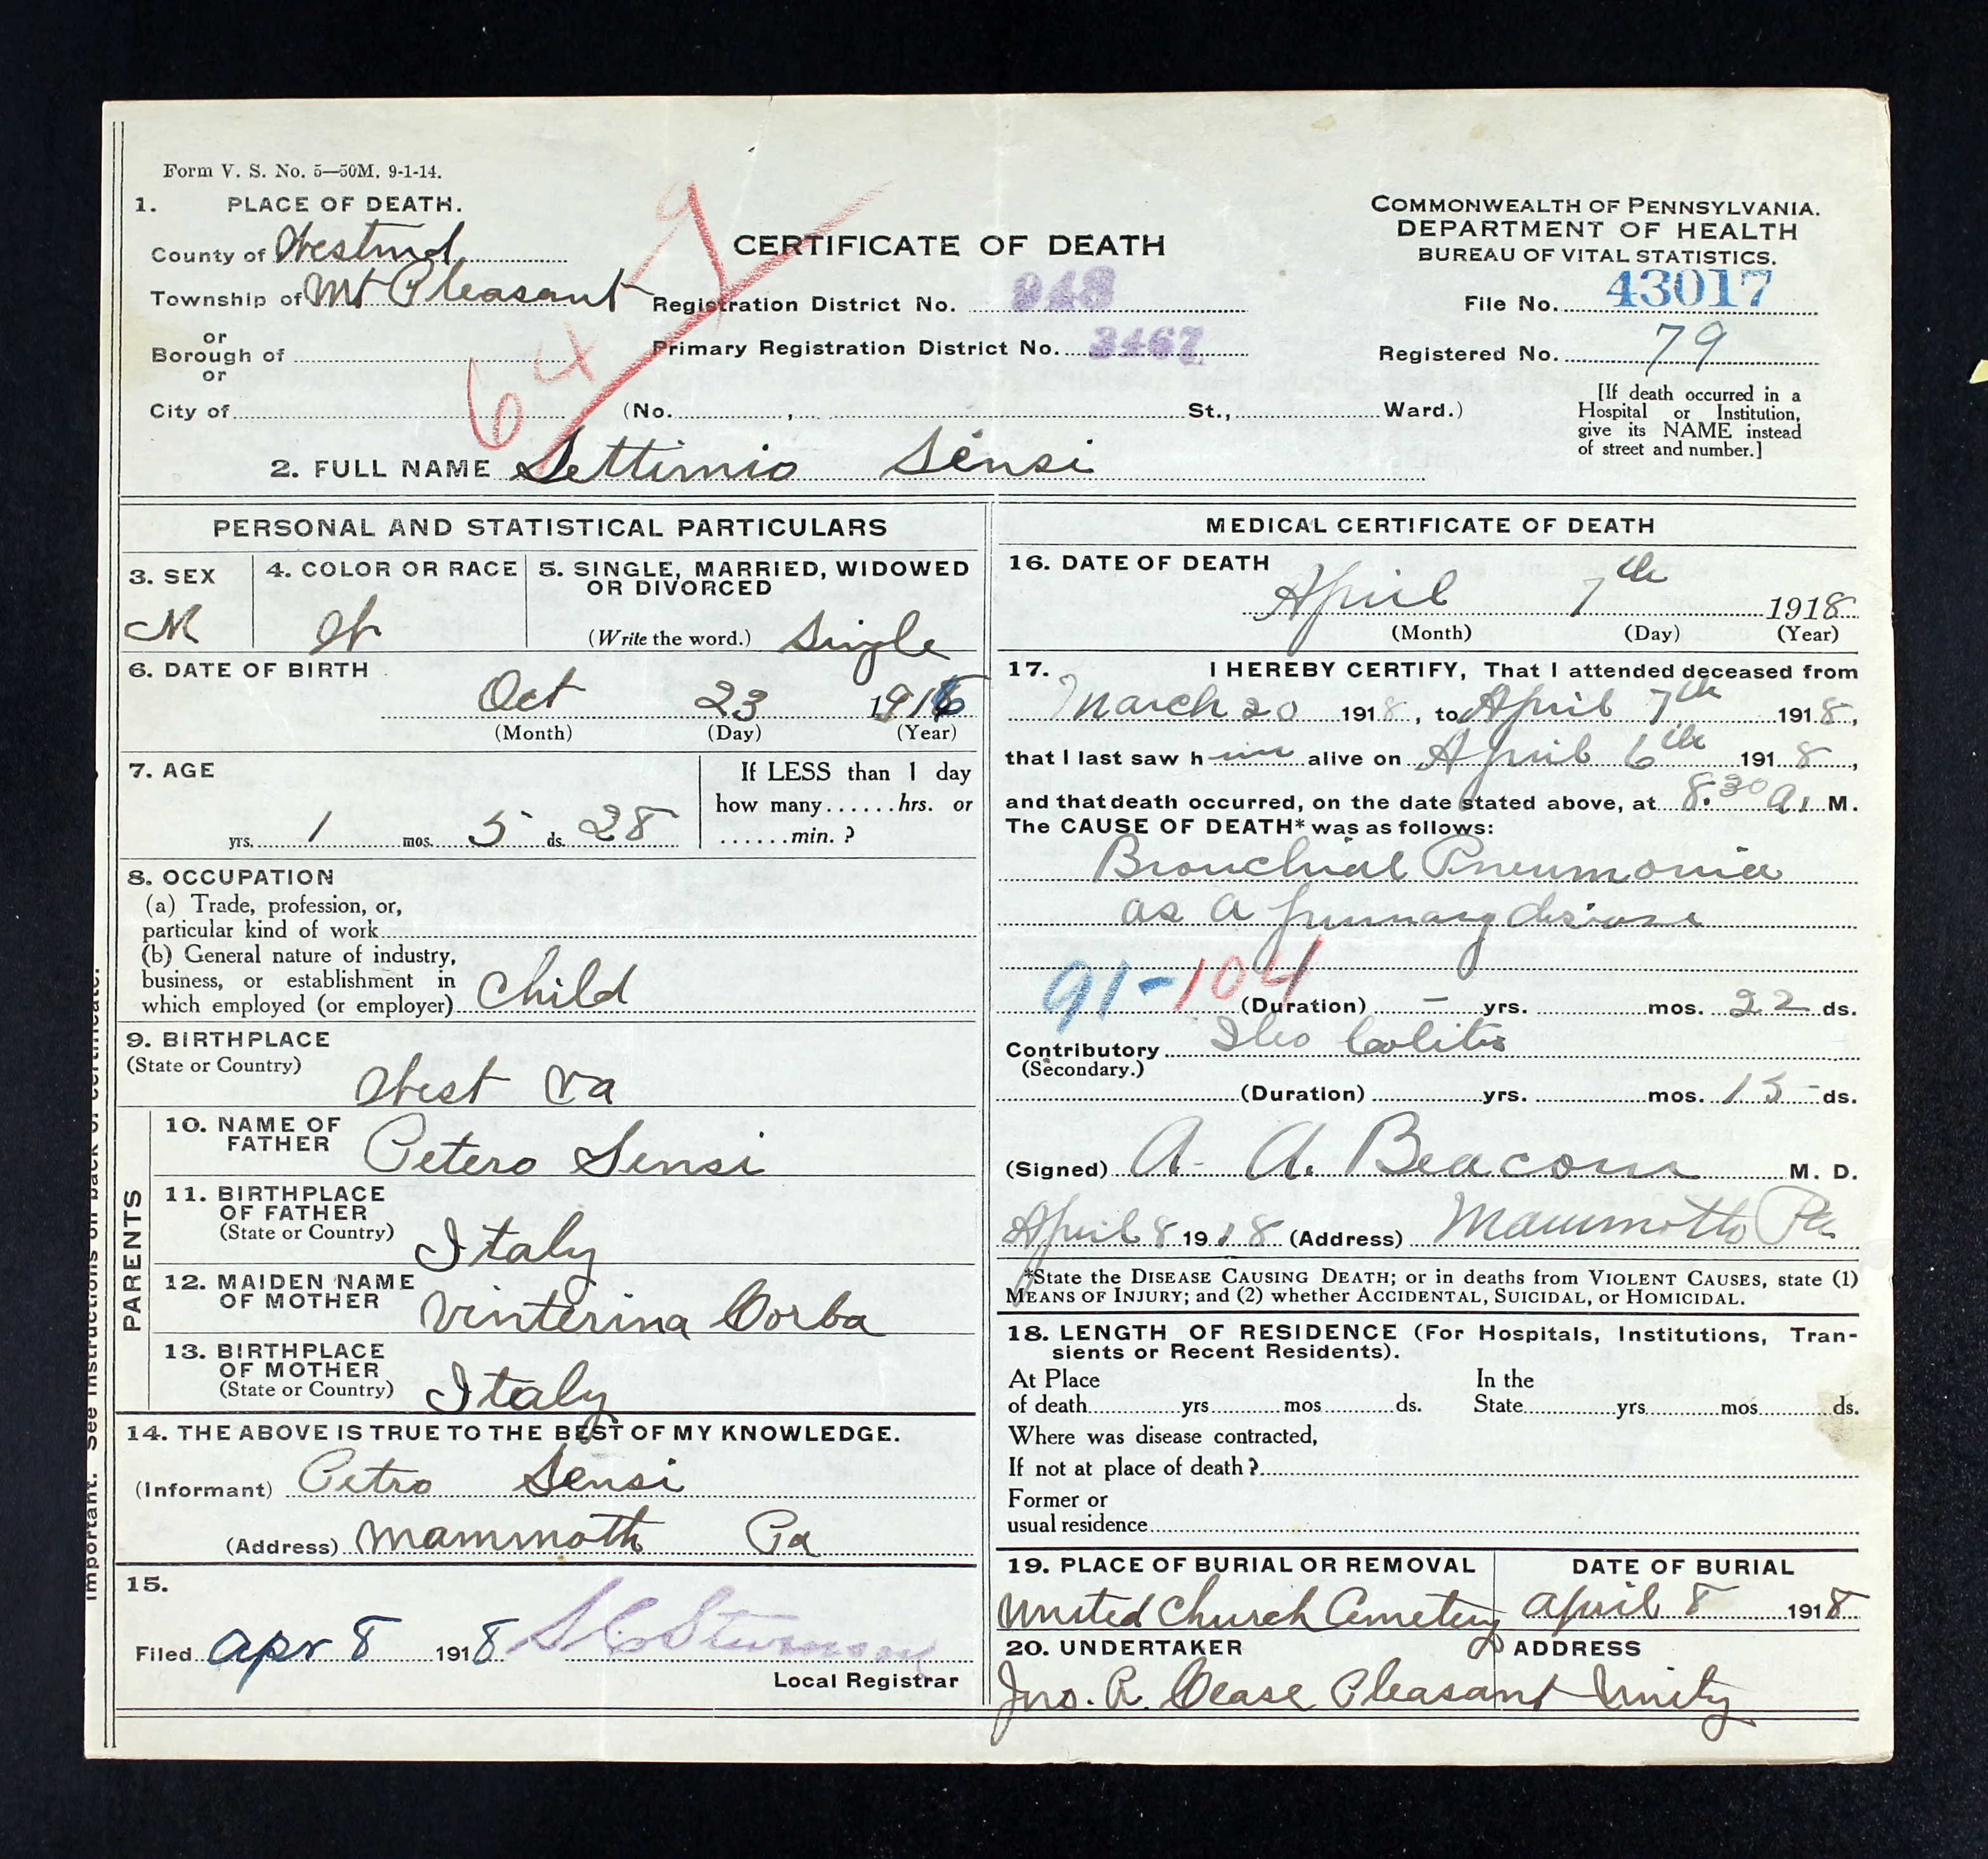 Form V. S. No. 5—50M, 9-1-14.
1. PLACE OF DEATH.
County of Westmd
Township of Mt Pleasant
or
Borough of
or
City of
64 9
CERTIFICATE OF DEATH
Registration District No. 948
Primary Registration District No. 3467
(No. , St., Ward.)
COMMONWEALTH OF PENNSYLVANIA.
DEPARTMENT OF HEALTH
BUREAU OF VITAL STATISTICS.
File No. 43017
Registered No. 79
[If death occurred in a
Hospital or Institution,
give its NAME instead
of street and number.]
2. FULL NAME Settimio Sensi
PERSONAL AND STATISTICAL PARTICULARS
3. SEX
M
4. COLOR OR RACE
W
5. SINGLE, MARRIED, WIDOWED
OR DIVORCED
(Write the word.) Single
6. DATE OF BIRTH
Oct 23 1916
(Month) (Day) (Year)
7. AGE
yrs. 1 mos. 5 ds. 28
If LESS than 1 day
how many......hrs. or
......min. ?
8. OCCUPATION
(a) Trade, profession, or,
particular kind of work
(b) General nature of industry,
business, or establishment in
which employed (or employer) Child
9. BIRTHPLACE
(State or Country)
West Va
PARENTS
10. NAME OF
FATHER Petero Sensi
11. BIRTHPLACE
OF FATHER
(State or Country) Italy
12. MAIDEN NAME
OF MOTHER Vinterina Corba
13. BIRTHPLACE
OF MOTHER
(State or Country) Italy
14. THE ABOVE IS TRUE TO THE BEST OF MY KNOWLEDGE.
(Informant) Petro Sensi
(Address) Mammoth Pa
15.
Filed Apr 8 1918
Local Registrar
MEDICAL CERTIFICATE OF DEATH
16. DATE OF DEATH
April 7th 1918
(Month) (Day) (Year)
17. I HEREBY CERTIFY, That I attended deceased from
March 20 1918, to April 7th 1918,
that I last saw him alive on April 6th 1918,
and that death occurred, on the date stated above, at 8.30 A. M.
The CAUSE OF DEATH* was as follows:
Bronchial Pneumonia
as a primary disease
91-104
(Duration) – yrs. mos. 22 ds.
Contributory Ileo Colitis
(Secondary.)
(Duration) yrs. mos. 15 ds.
(Signed) A. A. Beacom M. D.
April 8 1918 (Address) Mammoth Pa
*State the DISEASE CAUSING DEATH; or in deaths from VIOLENT CAUSES, state (1)
MEANS OF INJURY; and (2) whether ACCIDENTAL, SUICIDAL, or HOMICIDAL.
18. LENGTH OF RESIDENCE (For Hospitals, Institutions, Tran-
sients or Recent Residents).
At Place In the
of death yrs mos ds. State yrs mos ds.
Where was disease contracted,
If not at place of death?
Former or
usual residence
19. PLACE OF BURIAL OR REMOVAL
United Church Cemetery
DATE OF BURIAL
April 8 1918
20. UNDERTAKER ADDRESS
Jno. R. Cease Pleasant Unity
Important. See instructions on back of certificate.